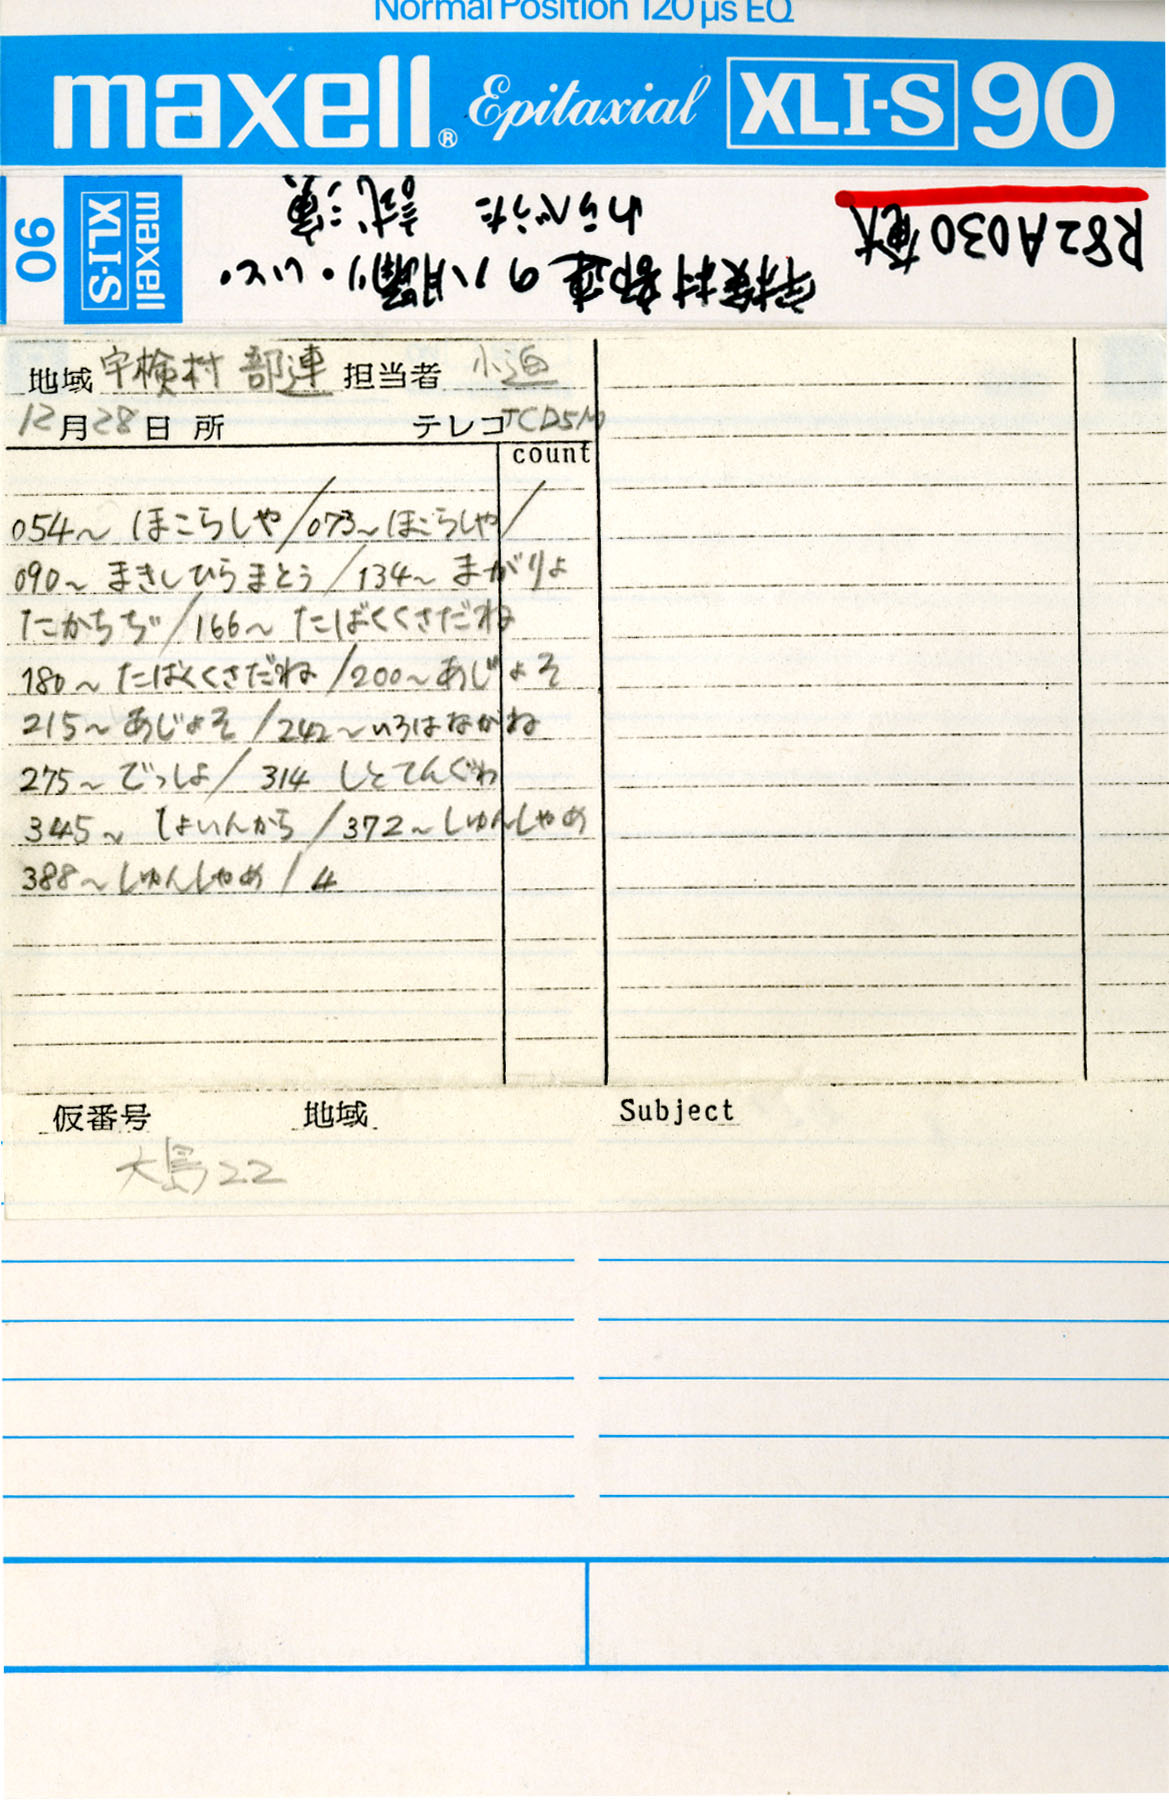 Normal Position 120 µs EQ
maxell® Epitaxial XLI-S 90
90 maxell XLI-S
R82A030 奄大
宇検村部連の八月踊り・いと・
わらべうた 試演
地域 宇検村 部連 担当者 小迫
12月28日 所 テレコ TCD5M
count
054〜 ほこらしや/073〜ほこらしや/
090〜 まきしひらまとう/134〜 まがりよ
たかちぢ/166〜 たばくくさだね
180〜 たばくくさだね/200〜あじょそ
215〜 あじょそ/242〜いろはなかね
275〜 でっしょ/ 314 しとてんぐゎ
345〜 しょいんから/372〜しゅんしゃめ
388〜しゅんしゃめ/4
仮番号 地域 Subject
大島22